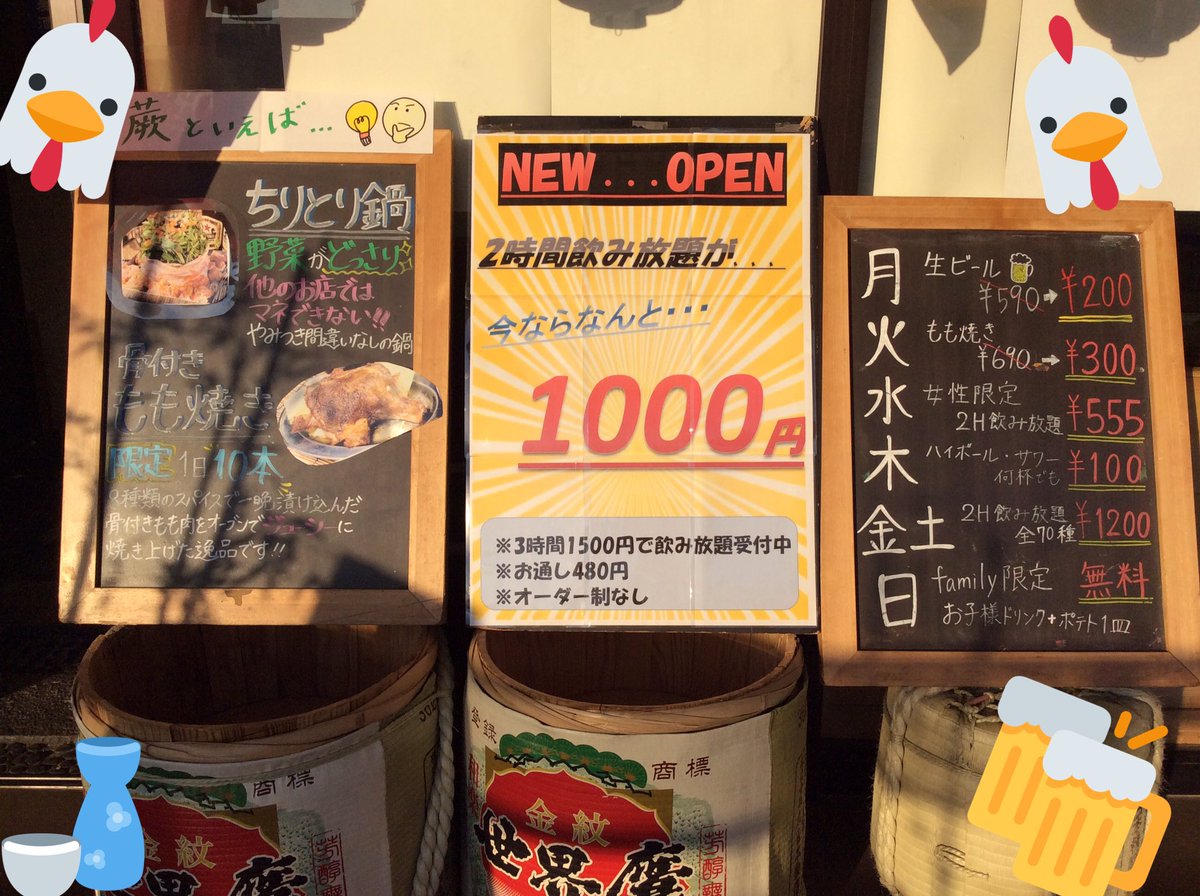 蕨といえば...
ちりとり鍋
野菜がどっさり
他のお店では
マネできない!!
やみつき間違いなしの鍋
骨付き
もも焼き
限定1日10本
2種類のスパイスで一晩漬け込んだ
骨付きもも肉をオーブンでジューシーに
焼き上げた逸品です!!
NEW...OPEN
2時間飲み放題が...
今ならなんと・・・
1000円
※3時間1500円で飲み放題受付中
※お通し480円
※オーダー制なし
月 生ビール
¥590→¥200
火 もも焼き
¥690→¥300
水 女性限定
2H飲み放題 ¥555
木 ハイボール・サワー
何杯でも ¥100
金土 2H飲み放題
全70種 ¥1200
日 family限定 無料
お子様ドリンク+ポテト1皿
登録 商標
金紋
世界鷹
金紋
世界鷹